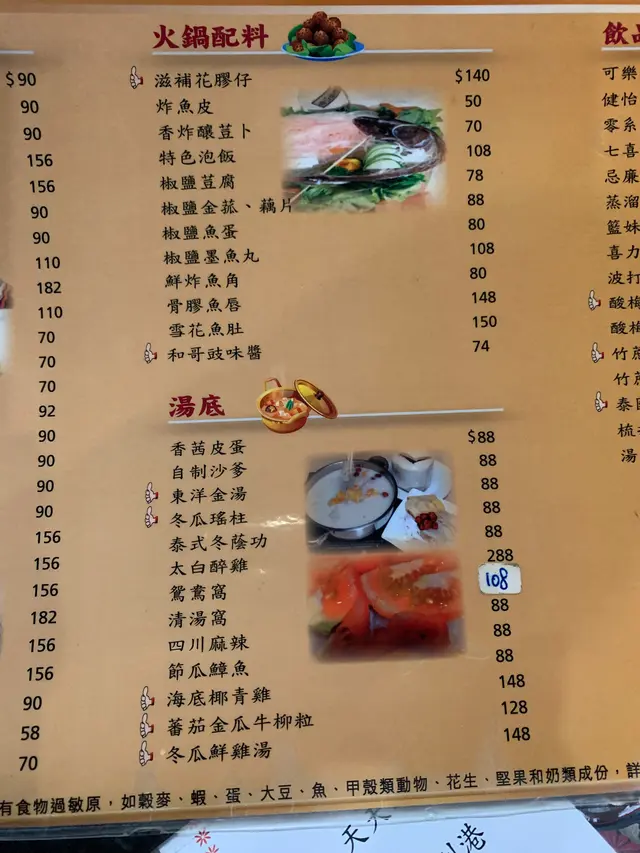 $90
90
90
156
156
90
90
110
182
110
70
70
70
92
90
90
90
90
156
156
156
182
156
156
90
58
70
火鍋配料
滋補花膠仔 $140
炸魚皮 50
香炸釀荳卜 70
特色泡飯 108
椒鹽荳腐 78
椒鹽金菰、藕片 88
椒鹽魚蛋 80
椒鹽墨魚丸 108
鮮炸魚角 80
骨膠魚唇 148
雪花魚肚 150
和哥豉味醬 74
湯底
香茜皮蛋 $88
自制沙爹 88
東洋金湯 88
冬瓜瑤柱 88
泰式冬蔭功 88
太白醉雞 288
鴛鴦窩 108
清湯窩 88
四川麻辣 88
節瓜鱆魚 88
海底椰青雞 148
蕃茄金瓜牛柳粒 128
冬瓜鮮雞湯 148
飲品
可樂
健怡
零系
七喜
忌廉
蒸溜
籃妹
喜力
波打
酸梅
酸梅
竹蔗
竹蔗
泰
梳
湯
有食物過敏原，如穀麥、蝦、蛋、大豆、魚、甲殼類動物、花生、堅果和奶類成份，詳
天
港